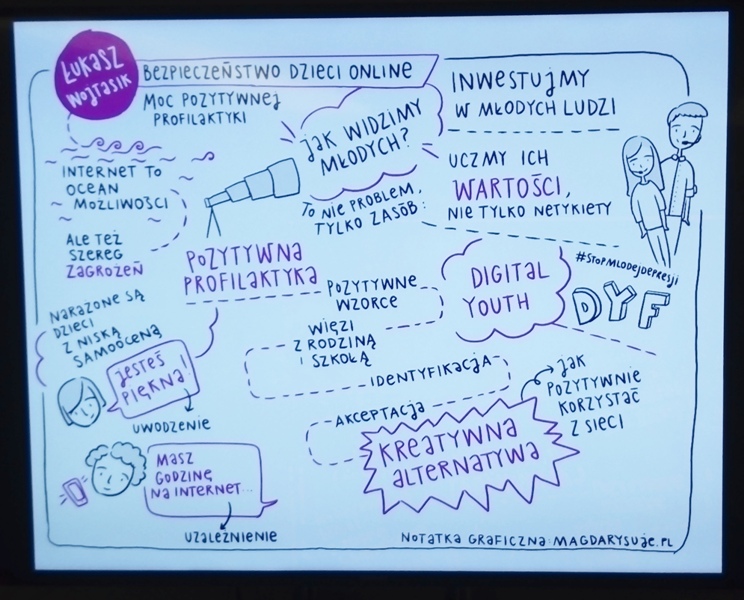 ŁUKASZ
WOJTASIK
BEZPIECZEŃSTWO DZIECI ONLINE
MOC POZYTYWNEJ
PROFILAKTYKI
INTERNET TO
OCEAN
MOŻLIWOŚCI
ALE TEŻ
SZEREG
ZAGROŻEŃ
JAK WIDZIMY
MŁODYCH?
TO NIE PROBLEM,
TYLKO ZASÓB:
INWESTUJMY
W MŁODYCH LUDZI
UCZMY ICH
WARTOŚCI,
NIE TYLKO NETYKIETY
#STOPMŁODEJDEPRESJI
DYF
DIGITAL
YOUTH
POZYTYWNA
PROFILAKTYKA
POZYTYWNE
WZORCE
WIĘZI
Z RODZINĄ
I SZKOŁĄ
IDENTYFIKACJA
AKCEPTACJA
KREATYWNA
ALTERNATYWA
JAK
POZYTYWNIE
KORZYSTAĆ
Z SIECI
NARAŻONE SĄ
DZIECI
Z NISKĄ
SAMOOCENĄ
JESTEŚ
PIĘKNA!
UWODZENIE
MASZ
GODZINĘ
NA INTERNET...
UZALEŻNIENIE
NOTATKA GRAFICZNA: MAGDARYSUJE.PL